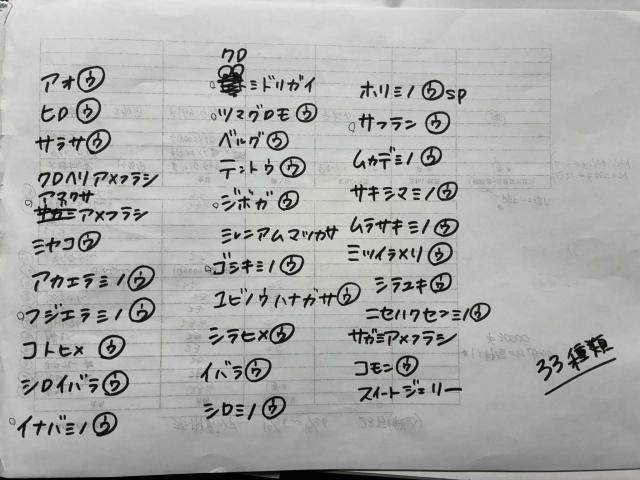 アオㇰウ
ヒロウ
サラサウ
クロヘリアメフラシ
アネクサ
アメフラシ
ミヤコウ
アカエラミノウ
フジエラミノウ
コトヒメウ
シロイバラウ
イナバミノウ
クロ
ミドリガイ
ツマグロモウ
ベルグウ
テントウウ
ジボガウ
ミレニアムマツカサ
ゴシキミノウ
ユビノウハナガサウ
シラヒメウ
イバラウ
シロミノウ
ホリミノウsp
サフランウ
ムカデミノウ
サキシマミノウ
ムラサキミノウ
ミツイラメリウ
シラユキウ
ニセハクセンミノウ
サガミアメフラシ
コモンウ
スイートジェリー
33種類